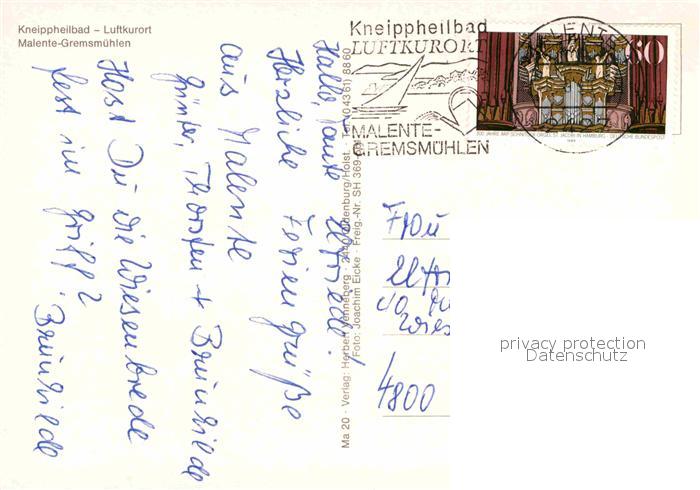 Kneippheilbad – Luftkurort
Malente-Gremsmühlen
Kneippheilbad
LUFTKURORT
MALENTE-
GREMSMÜHLEN
80
300 JAHRE ARP SCHNITGER ORGEL ST. JACOBI IN HAMBURG · DEUTSCHE BUNDESPOST
Hallo, Tante Elfriede!
Herzliche Feriengrüße
aus Malente
Günter, Thorsten + Brunhilde
Hast Du die Wiesenbrede
fest im Griff?
Brunhilde
Ma 20 · Verlag: Herbert Henneberg · 2440 Oldenburg/Holst. · Tel. (04361) 8860
Foto: Joachim Eicke · Freig.-Nr. SH 369-
Frau
Wies
4800
privacy protection
Datenschutz